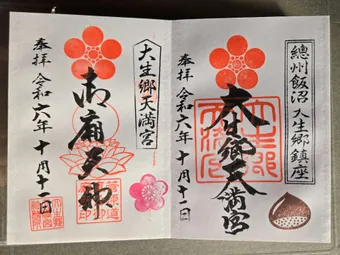 總州飯沼 大生郷鎮座
大生郷天満宮
奉拝 令和六年十月十二日
大生郷天満宮
御廟天神
奉拝 令和六年十月十二日